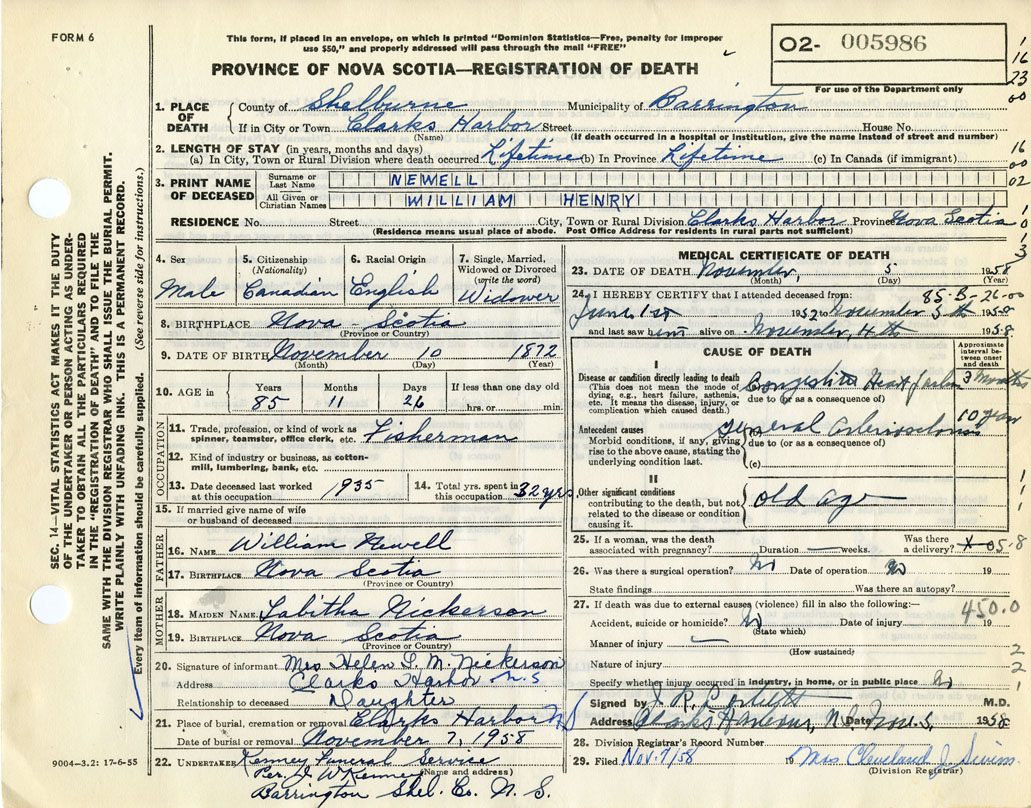 FORM 6
This form, if placed in an envelope, on which is printed "Dominion Statistics—Free, penalty for improper
use $50," and properly addressed will pass through the mail "FREE"
O2- 005986
For use of the Department only
1
16
23
00
PROVINCE OF NOVA SCOTIA—REGISTRATION OF DEATH
1. PLACE OF DEATH
County of Shelburne Municipality of Barrington
If in City or Town Clarks Harbor Street House No.
(Name) (If death occurred in a hospital or institution, give the name instead of street and number)
2. LENGTH OF STAY (in years, months and days)
(a) In City, Town or Rural Division where death occurred Lifetime (b) In Province Lifetime (c) In Canada (if immigrant)
16
00
02
3. PRINT NAME OF DECEASED
Surname or Last Name NEWELL
All Given or Christian Names WILLIAM HENRY
RESIDENCE No. Street City, Town or Rural Division Clarks Harbor Province Nova Scotia
(Residence means usual place of abode. Post Office Address for residents in rural parts not sufficient)
1
0
1
3
4. Sex
Male
5. Citizenship
(Nationality)
Canadian
6. Racial Origin
English
7. Single, Married,
Widowed or Divorced
(write the word)
Widower
8. BIRTHPLACE Nova - Scotia
(Province or Country)
9. DATE OF BIRTH November 10 1872
(Month) (Day) (Year)
10. AGE in
Years Months Days If less than one day old
85 11 26 hrs. or min.
OCCUPATION
11. Trade, profession or kind of work as
spinner, teamster, office clerk, etc. Fisherman
12. Kind of industry or business, as cotton-
mill, lumbering, bank, etc.
13. Date deceased last worked
at this occupation 1935
14. Total yrs. spent in
this occupation 32 yrs.
15. If married give name of wife
or husband of deceased
FATHER
16. NAME William Newell
17. BIRTHPLACE Nova Scotia
(Province or Country)
MOTHER
18. MAIDEN NAME Tabitha Nickerson
19. BIRTHPLACE Nova Scotia
(Province or Country)
20. Signature of informant Mrs Helen L. M. Nickerson
Address Clarks Harbor N.S
Relationship to deceased Daughter
21. Place of burial, cremation or removal Clarks Harbor NS
Date of burial or removal November 7, 1958
22. UNDERTAKER Kenney Funeral Service
(Name and address)
Per. W Kenney
Barrington Shel. Co. N. S.
9004—3.2: 17-6-55
MEDICAL CERTIFICATE OF DEATH
23. DATE OF DEATH November, 5 1958
(Month) (Day) (Year)
24. I HEREBY CERTIFY that I attended deceased from: 85-B-26-00
June 1st 1952 to November 5th 1958
and last saw him alive on November, 4th 1958
CAUSE OF DEATH
Approximate
interval be-
tween onset
and death
I
Disease or condition directly leading to death
(This does not mean the mode of
dying, e.g., heart failure, asthenia,
etc. It means the disease, injury, or
complication which caused death.)
(a) Congestive Heart failure 3 Months
due to (or as a consequence of)
Antecedent causes
Morbid conditions, if any, giving
rise to the above cause, stating the
underlying condition last.
General Arteriosclerosis 10 years
due to (or as a consequence of)
(c)
II
Other significant conditions
contributing to the death, but not
related to the disease or condition
causing it.
old age
1
1
1
25. If a woman, was the death
associated with pregnancy? Duration — weeks. Was there
a delivery? X-05-8
26. Was there a surgical operation? No Date of operation No 19
State findings Was there an autopsy?
27. If death was due to external causes (violence) fill in also the following:—
450.0
Accident, suicide or homicide? No Date of injury 19
(State which)
Manner of injury —
(How sustained)
Nature of injury
Specify whether injury occurred in industry, in home, or in public place No
2
2
1
Signed by J. R. M.D.
Address Clarks Harbour, N.S. Date Nov. 5, 1958
28. Division Registrar's Record Number
29. Filed Nov. 7/58 19 Mrs Cleveland J. Swim
(Division Registrar)
SEC. 14—VITAL STATISTICS ACT MAKES IT THE DUTY
OF THE UNDERTAKER OR PERSON ACTING AS UNDER-
TAKER TO OBTAIN ALL THE PARTICULARS REQUIRED
IN THE "REGISTRATION OF DEATH" AND TO FILE THE
SAME WITH THE DIVISION REGISTRAR WHO SHALL ISSUE THE BURIAL PERMIT.
WRITE PLAINLY WITH UNFADING INK. THIS IS A PERMANENT RECORD.
Every item of information should be carefully supplied. (See reverse side for instructions.)